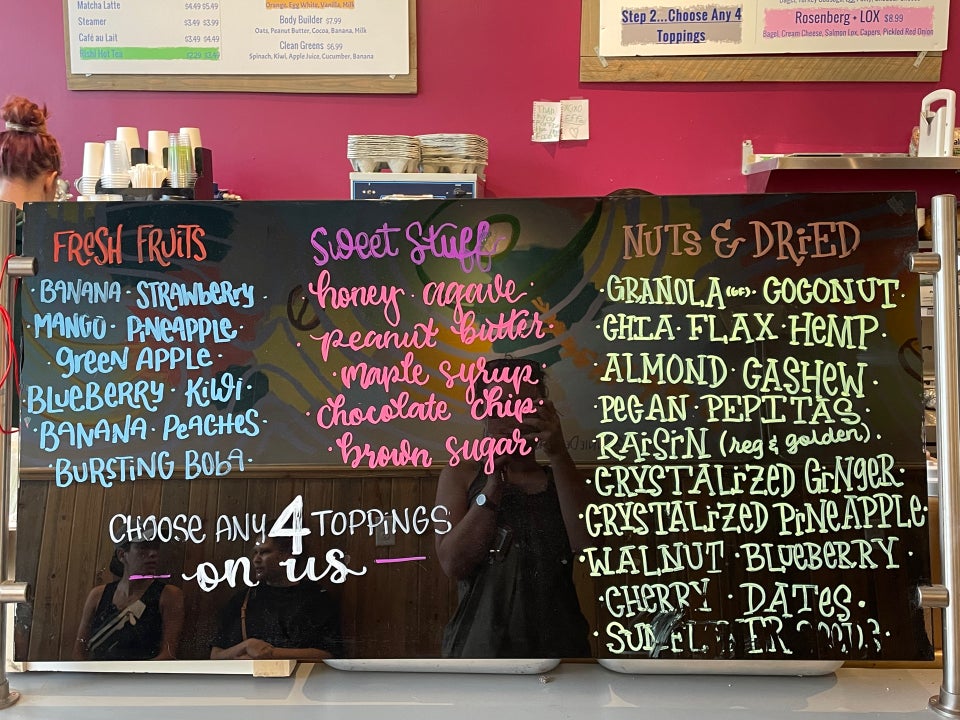 Matcha Latte $4.49 $5.49
Steamer $3.49 $3.99
Café au Lait $3.49 $4.49
Hot Tea $2.29
Orange, Egg White, Vanilla, Milk
Body Builder $7.99
Oats, Peanut Butter, Cocoa, Banana, Milk
Clean Greens $6.99
Spinach, Kiwi, Apple Juice, Cucumber, Banana
Step 2...Choose Any 4
Toppings
Rosenberg + LOX $8.99
Bagel, Cream Cheese, Salmon Lox, Capers, Pickled Red Onion
FRESH FRUITS
BANANA · STRAWBERRY
MANGO · PINEAPPLE ·
GREEN APPLE ·
BLUEBERRY · KIWI ·
· BANANA · PEACHES ·
· BURSTING BOBA ·
CHOOSE ANY 4 TOPPINGS
on us
Sweet Stuff
· honey · agave ·
· peanut butter ·
· maple syrup
· chocolate chip ·
· brown sugar ·
NUTS & DRIED
· GRANOLA (GF) · COCONUT ·
· CHIA · FLAX · HEMP ·
· ALMOND · CASHEW ·
· PECAN · PEPITAS ·
· RAISIN (reg & golden) ·
· CRYSTALIZED GINGER ·
· CRYSTALIZED PINEAPPLE ·
· WALNUT · BLUEBERRY ·
· CHERRY · DATES ·
· SUNFLOWER